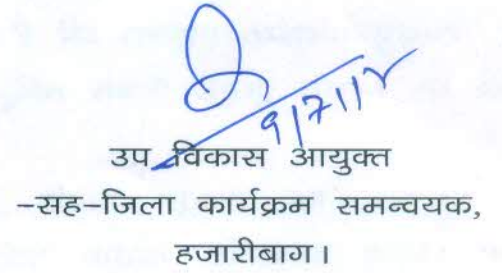 9/7/12
उप विकास आयुक्त
-सह-जिला कार्यक्रम समन्वयक,
हजारीबाग।